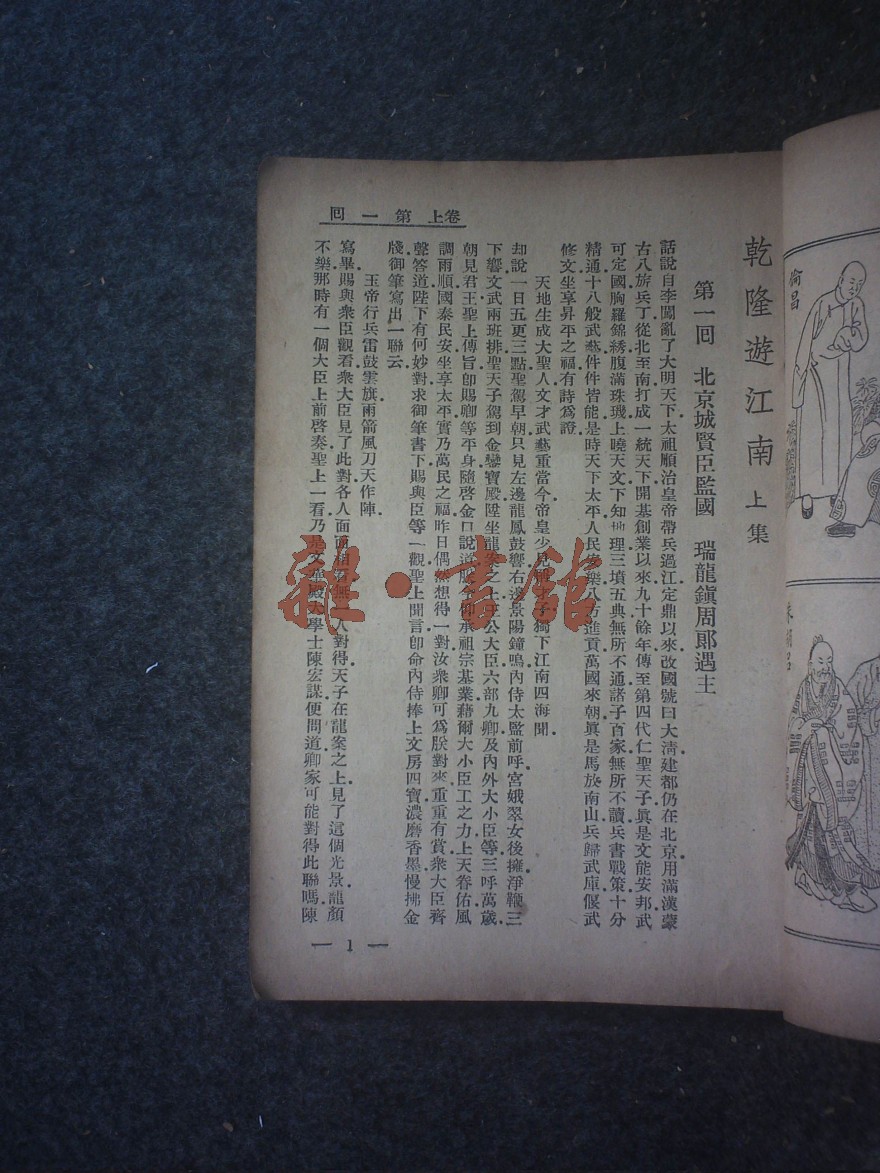 卷上 第一回
乾隆遊江南 上集
第一回 北京城賢臣監國 瑞龍鎮周郎遇主
話說自李闖亂了大明天下太祖順治皇帝帶兵過江定鼎以來改國號曰大清建都仍在北京用滿漢蒙
古八旂兵丁從北至南打成一統天下開基創業以來九十餘年傳至第四代仁聖天子眞是文能安邦武
可定國胸羅錦綉腹滿珠璣上曉天文下知地理三墳五典無所不通諸子百家無所不讀兵書戰策十分
精通十八般武藝件件皆能是時天下太平人民安樂八方進貢萬國來朝眞是馬放南山兵歸武庫偃武
修文坐享昇平之福有詩爲證
天地生成大聖人文才武藝重當今帝皇少見 才子獨下江南四海聞
却說一日五更三點聖駕早朝只見左邊龍鳳鼓響右邊景陽鐘鳴內侍太監前呼宮娥翠女後擁淨鞭三
下響文武兩班排聖天子駕到金鑾寶殿陞坐龍案之上王公大臣六部九卿及內外大小臣等三呼萬歲
朝見君王聖上傳旨卽賜卿等平身隨啓金口說道朕今仰承祖宗基業藉爾大小臣工之力上天眷佑風
調雨順國泰民安坐享太平實乃萬民之福昨日偶然想得一對汝衆卿可爲朕對來重重有賞衆大臣齊
聲答道陛下有何妙對求御筆書下賜與臣等一觀聖上聞言卽命內侍捧上文房四寶濃磨香墨慢拂金
牋御筆寫出一聯云
玉帝行兵雷鼓雲旗雨箭風刀天作陣
寫畢賜與衆臣觀看衆大臣見了此對各人面面相看無一人對得天子在龍案之上見了這個光景龍顏
不樂那時有一個大臣上前啓奏聖上一看乃是文華殿大學士陳宏謀便問道卿家可能對得此聯嗎陳
1
雜·書館